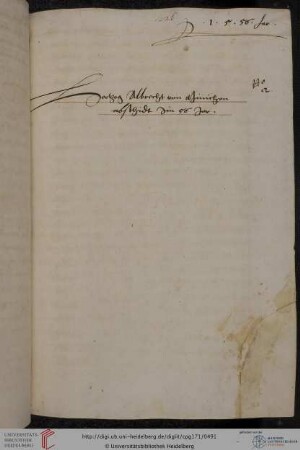 1 · 5 · 56 Jar.
Hertzog Albrecht von
abschidt Im 56 Jar.
UNIVERSITÄTS-
BIBLIOTHEK
HEIDELBERG
http://digi.ub.uni-heidelberg.de/diglit/cpg171/0491
© Universitätsbibliothek Heidelberg